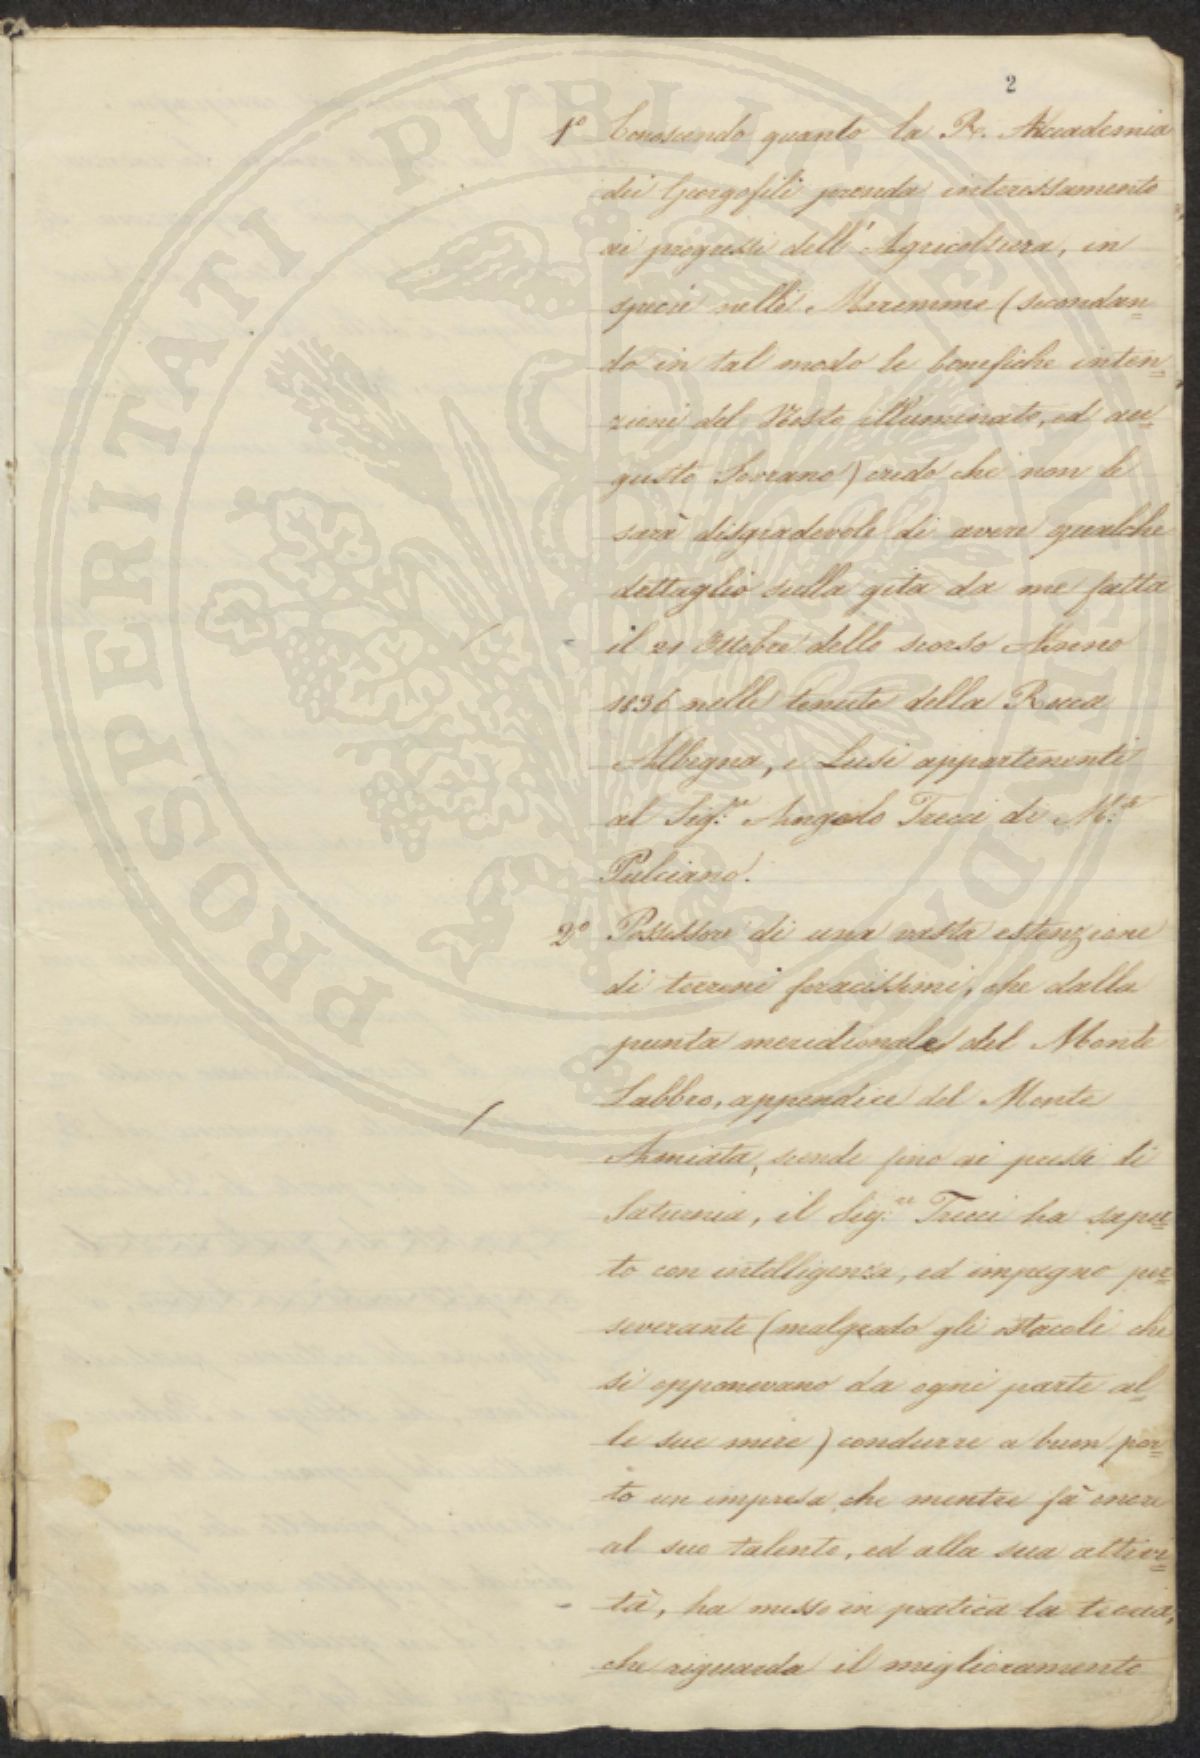 2
1° Conoscendo quanto la R. Accademia
dei Georgofili prenda interessamento
ai progressi dell'Agricoltura, in
specie nelle Maremme (secondan=
do in tal modo le benefiche inten=
zioni del Nostro illuminato, ed au=
gusto Sovrano) credo che non le
sarà disgradevole di avere qualche
dettaglio sulla gita da me fatta
il 21 Ottobre dello scorso Anno
1836 nelle tenute della Rocca
Albegna, e Lusi appartenenti
al Sig.re Angelo Trecci di M.te
Pulciano.
2° Possessore di una vasta estenzione
di terreni feracissimi, che dalla
punta meridionale del Monte
Labbro, appendice del Monte
Amiata, scende fino ai pressi di
Saturnia, il Sig.re Trecci ha sapu=
to con intelligenza, ed impegno per=
severante (malgrado gli ostacoli che
si opponevano da ogni parte al=
le sue mire) condurre a buon por=
to un impresa che mentre fà onore
al suo talento, ed alla sua attivi=
tà, ha messo in pratica la teoria,
che riguarda il miglioramento
PROSPERITATI PUBLICAE AUGENDAE